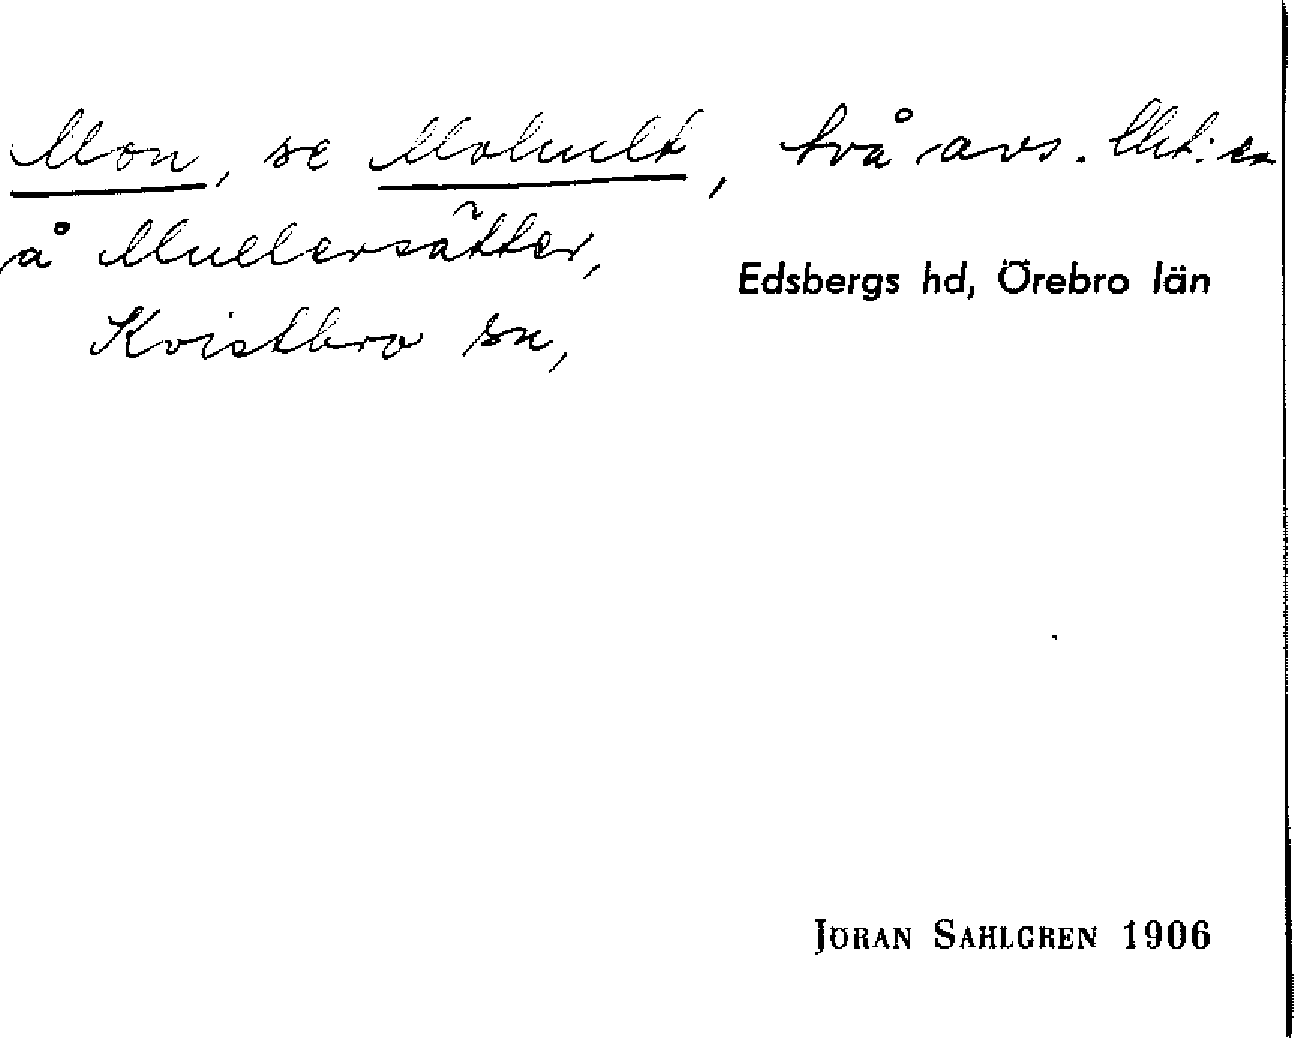 Mon, se Mohult, två avs. lht:er
å Mullersätter,
Edsbergs hd, Örebro län
Kvistbro sn,
JÖRAN SAHLGREN 1906